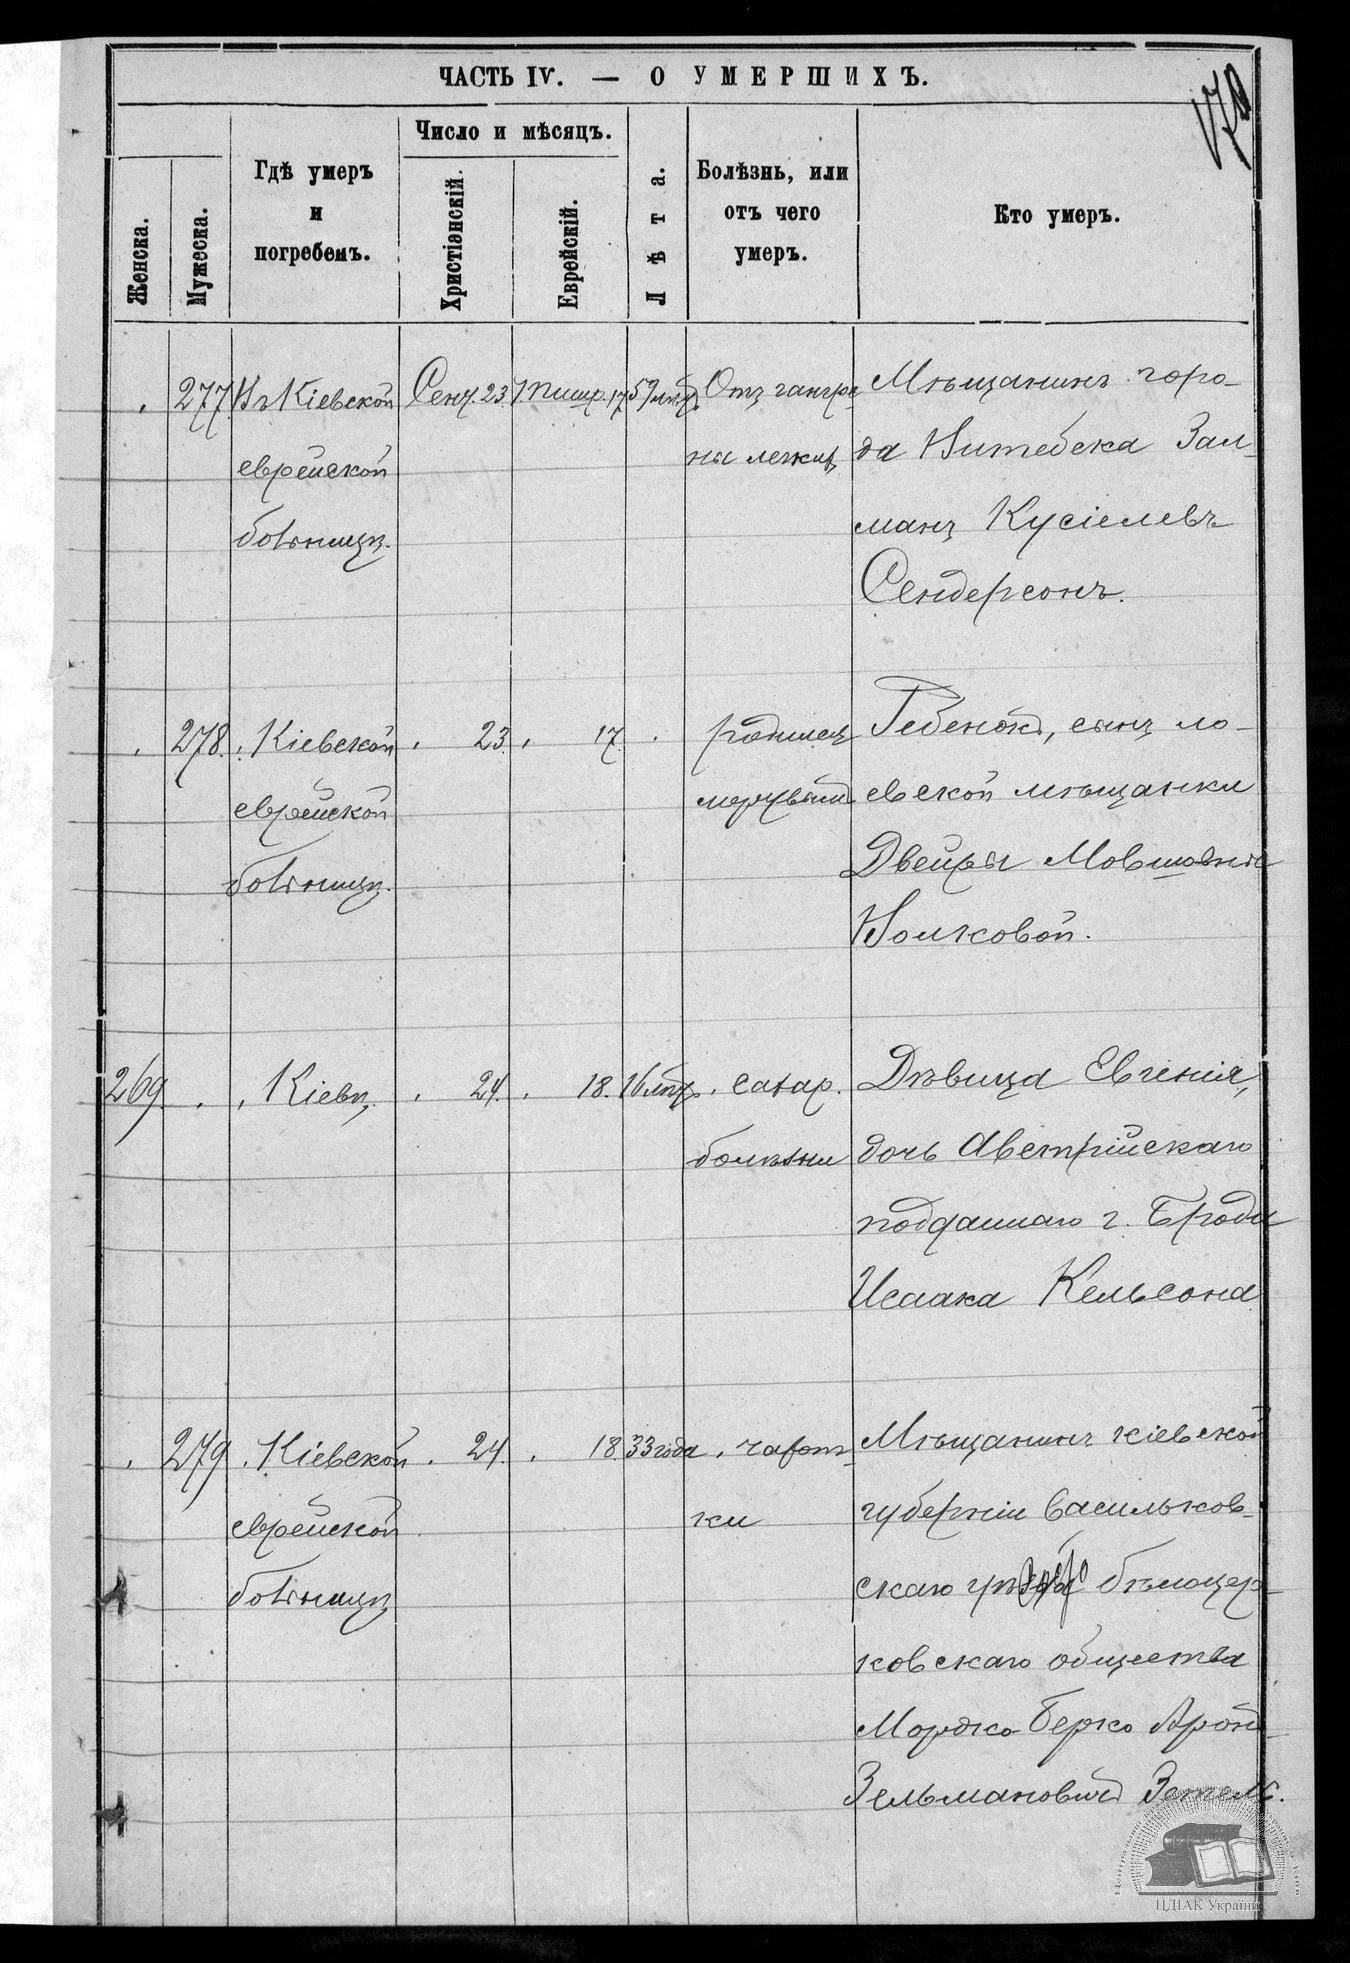 ЧАСТЬ IV. — О УМЕРШИХЪ.
Женска.
Мужеска.
Гдѣ умеръ
и
погребенъ.
Число и мѣсяцъ.
Христіянскій.
Еврейскій.
Лѣта.
Болѣзнь, или
отъ чего
умеръ.
Кто умеръ.
277. Въ Кіевской Сент. 23. Тишр. 17. 59 лѣтъ Отъ гангре- Мѣщанинъ горо-
еврейской ны легкихъ да Витебска Зал-
больницѣ. манъ Кусіелевъ
Сендерсонъ.
278. Кіевской 23. 17. родился Ребенокъ, сынъ ло-
еврейской мертвымъ евской мѣщанки
больницѣ. Двейры Мовшовны
Волковой.
269. Кіевѣ, 24. 18. 16 лѣтъ сахар. Дѣвица Евгенія,
болѣзни дочь Австрійскаго
подданнаго г. Броды
Исаака Кельсона
279. Кіевской 24. 18. 33 года чахот- Мѣщанинъ кіевской
еврейской ки губерніи Васильков-
больницѣ скаго уѣзда бѣлоцер-
ковскаго общества
Мордко-Берко Арон-
Зельмановичъ
ЦДІАК України